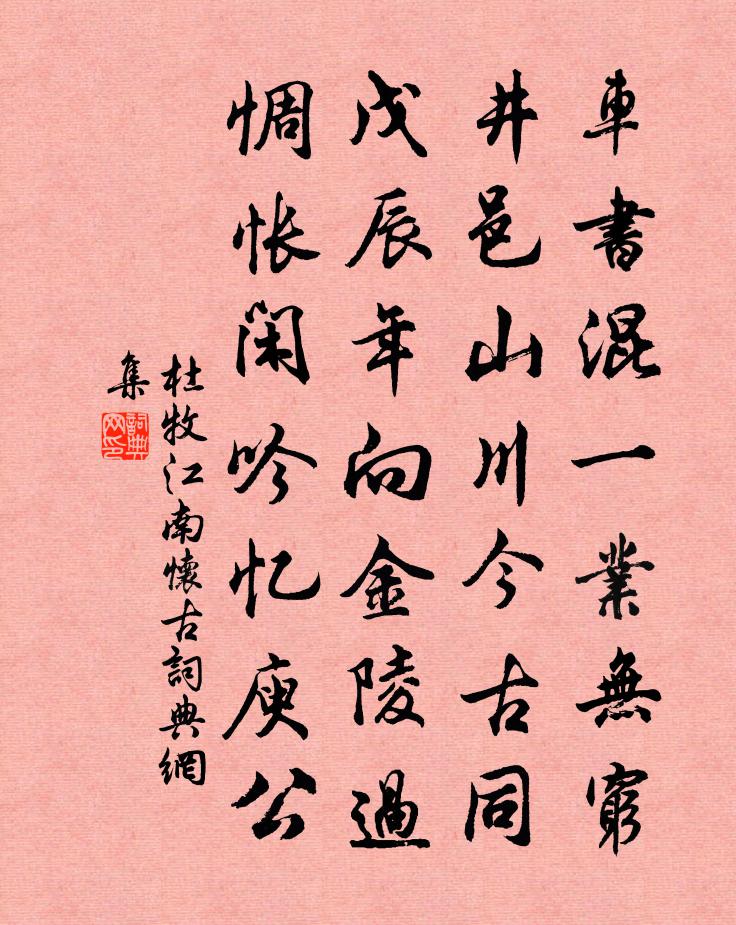 車書混一業無窮
井邑山川今古同
戊辰年向金陵過
惆怅閑吟忆庾公
杜牧江南懷古詞典網
集
詞典
网印